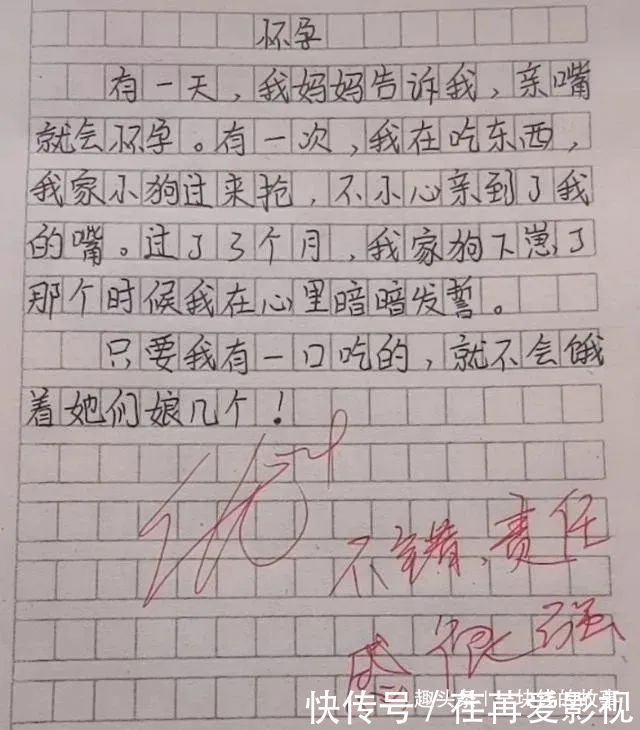 怀孕
有一天，我妈妈告诉我，亲嘴
就会怀孕。有一次，我在吃东西，
我家小狗过来抢，不小心亲到了我
的嘴。过了3个月，我家狗下崽了
那个时候我在心里暗暗发誓。
只要我有一口吃的，就不会饿
着她们娘几个！
不错，责任
感很强
趣头条
块钱的故事
快传号／荏苒爱影视